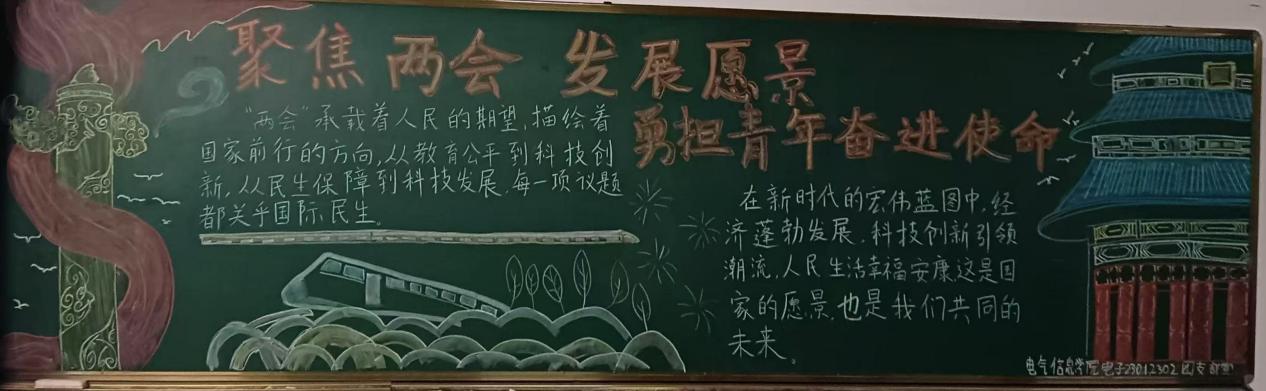 聚焦两会 发展愿景
勇担青年奋进使命
“两会”承载着人民的期望,描绘着
国家前行的方向,从教育公平到科技创
新,从民生保障到科技发展,每一项议题
都关乎国际民生。
在新时代的宏伟蓝图中,经
济蓬勃发展,科技创新引领
潮流,人民生活幸福安康,这是国
家的愿景,也是我们共同的
未来。
电气信息学院电子23012302团支部